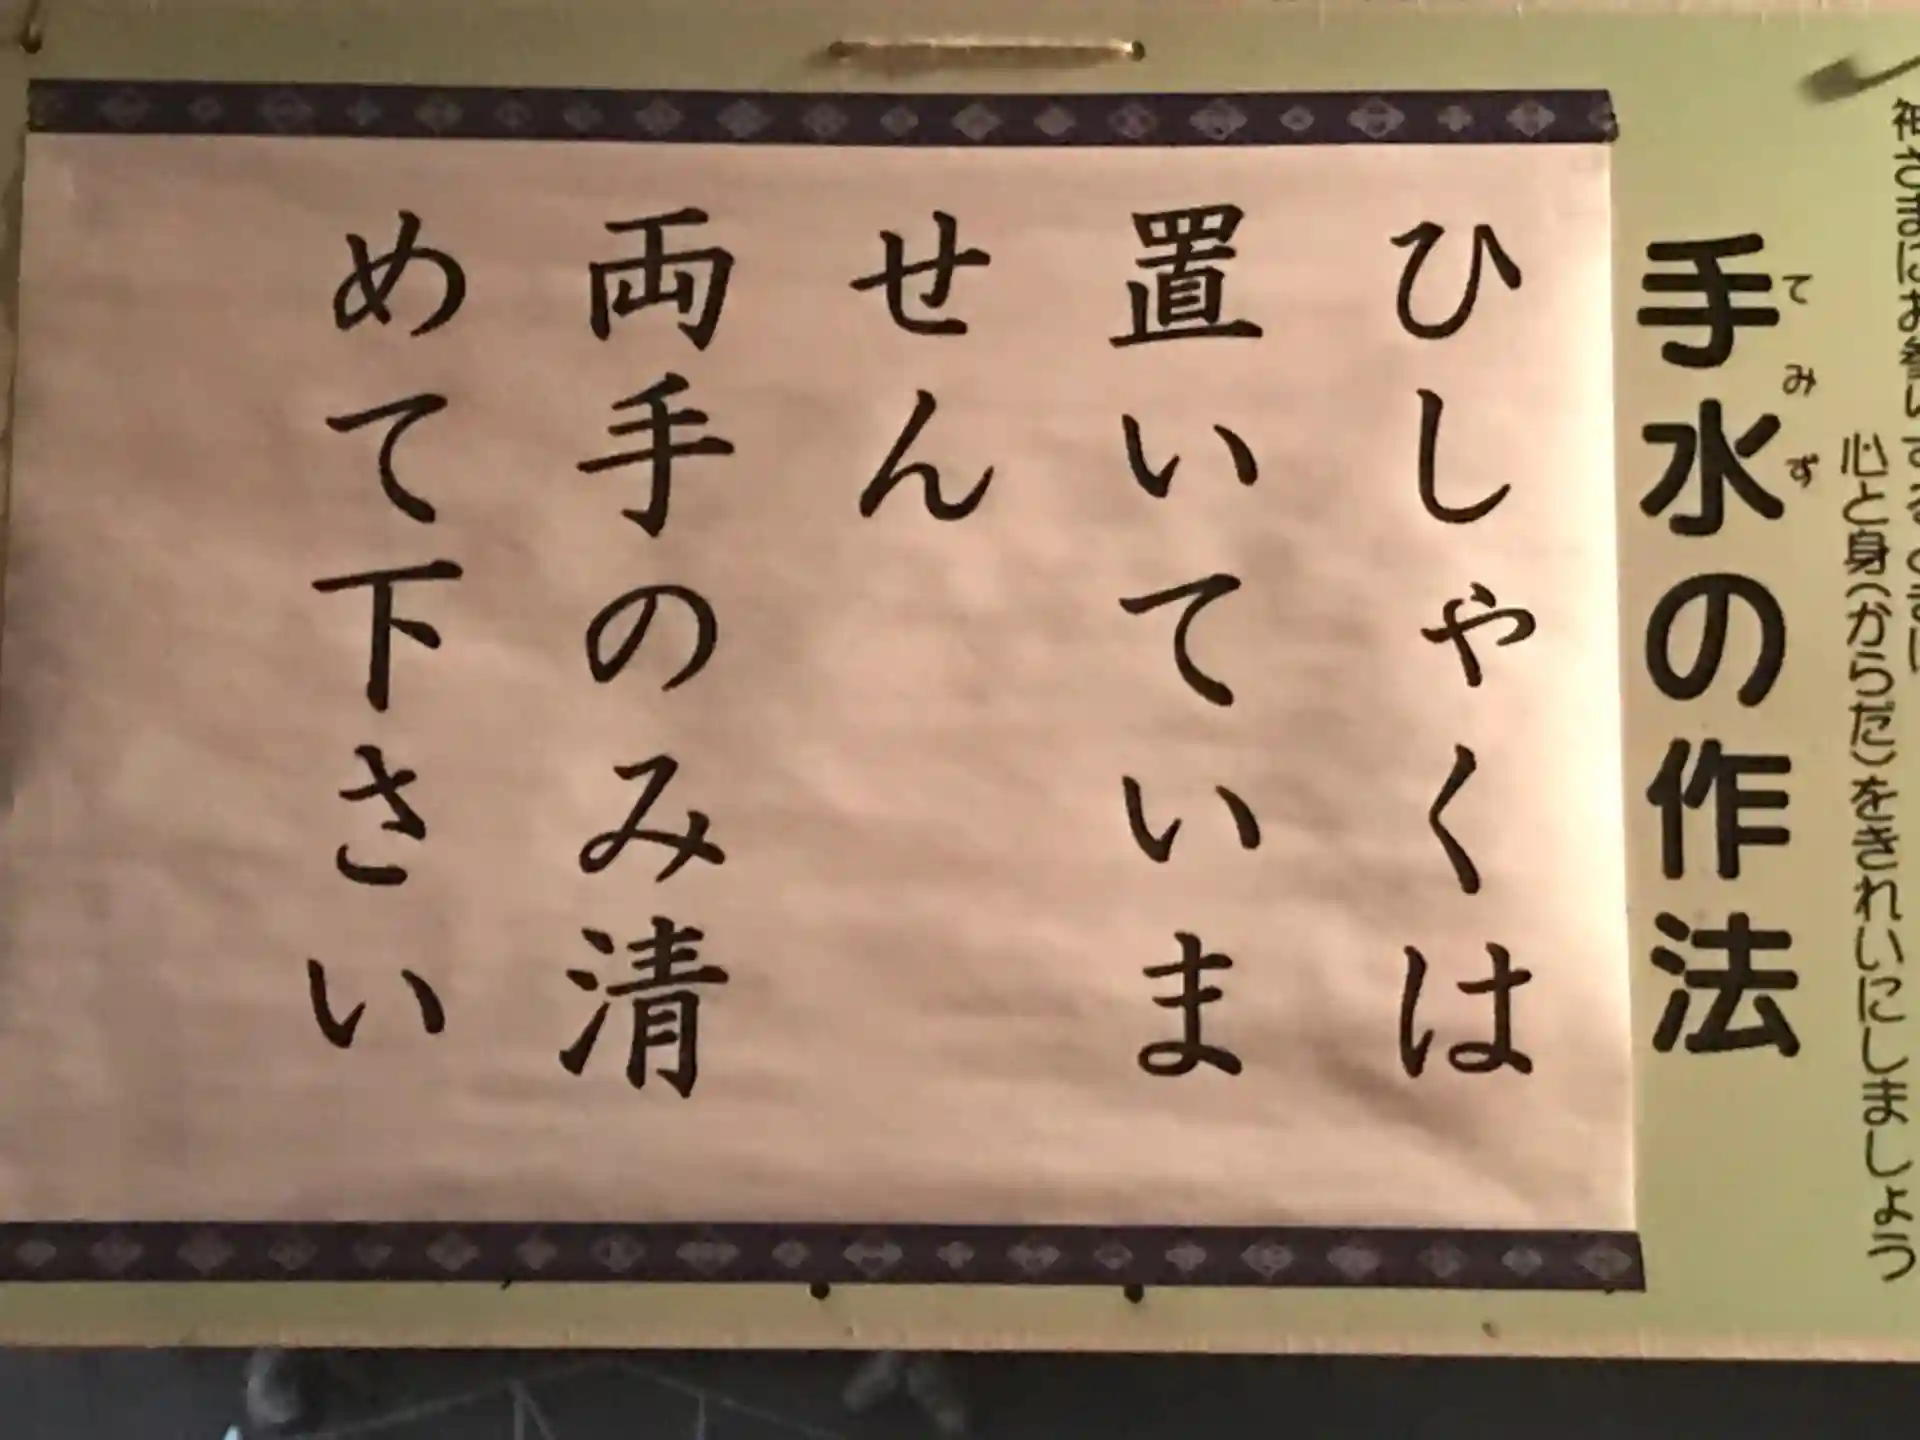 神さまにお参りするまえに
心と身(からだ)をきれいにしましょう
手水の作法
てみず
ひしゃくは
置いていま
せん
両手のみ清
めて下さい